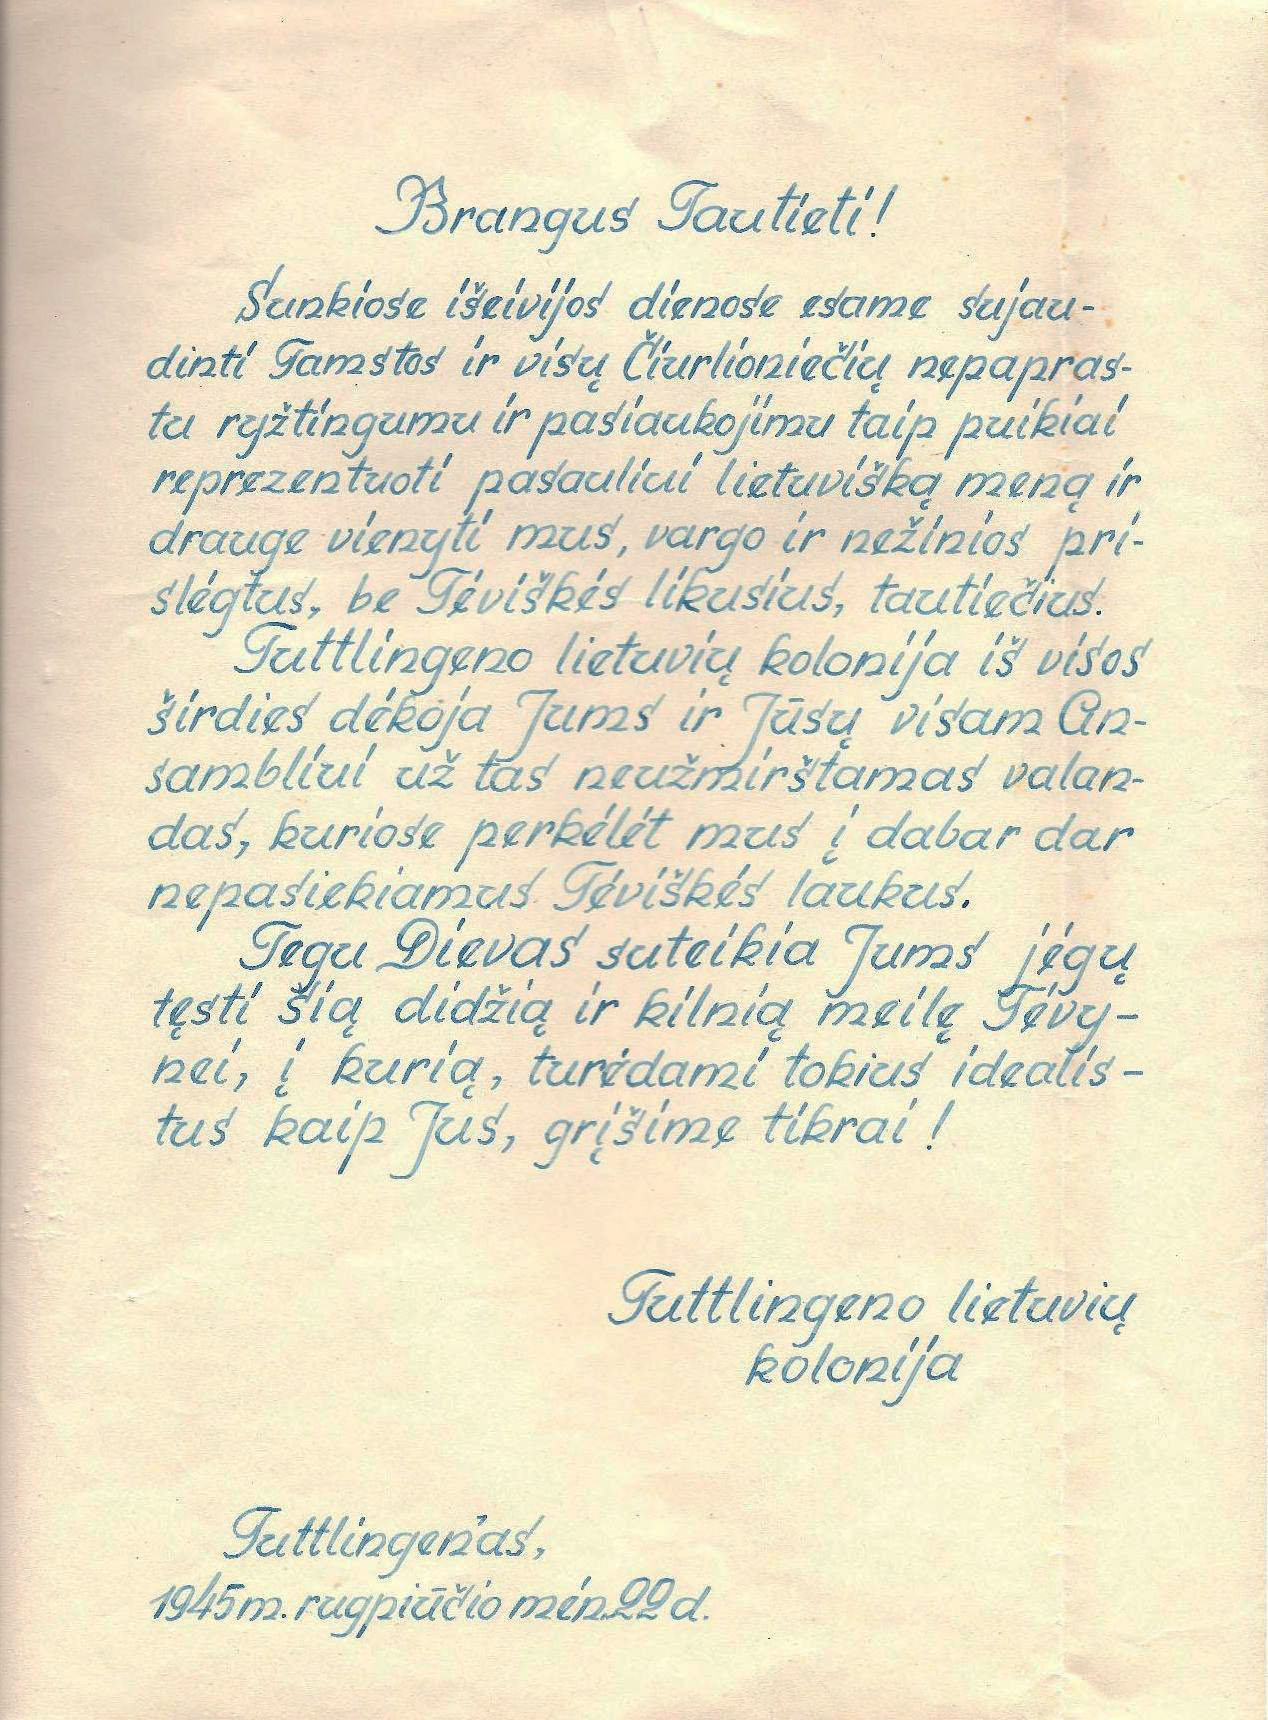 Brangus Tautieti!
Sunkiose išeivijos dienose esame sujau-
dinti Tamstos ir visų Čiurlioniečių nepapras-
tu ryžtingumu ir pasiaukojimu taip puikiai
reprezentuoti pasauliui lietuvišką meną ir
drauge vienyti mus, vargo ir nežinios pri-
slėgtus, be Tėviškės likusius, tautiečius.
Tuttlingeno lietuvių kolonija iš visos
širdies dėkoja Jums ir Jūsų visam An-
sambliui už tas neužmirštamas valan-
das, kuriose perkėlėt mus į dabar dar
nepasiekiamus Tėviškės laukus.
Tegu Dievas suteikia Jums jėgų
tęsti šią didžią ir kilnią meilę Tėvy-
nei, į kurią, turėdami tokius idealis-
tus kaip Jus, grįšime tikrai!
Tuttlingeno lietuvių
kolonija
Tuttlingen'as,
1945 m. rugpiūčio mėn. 22 d.